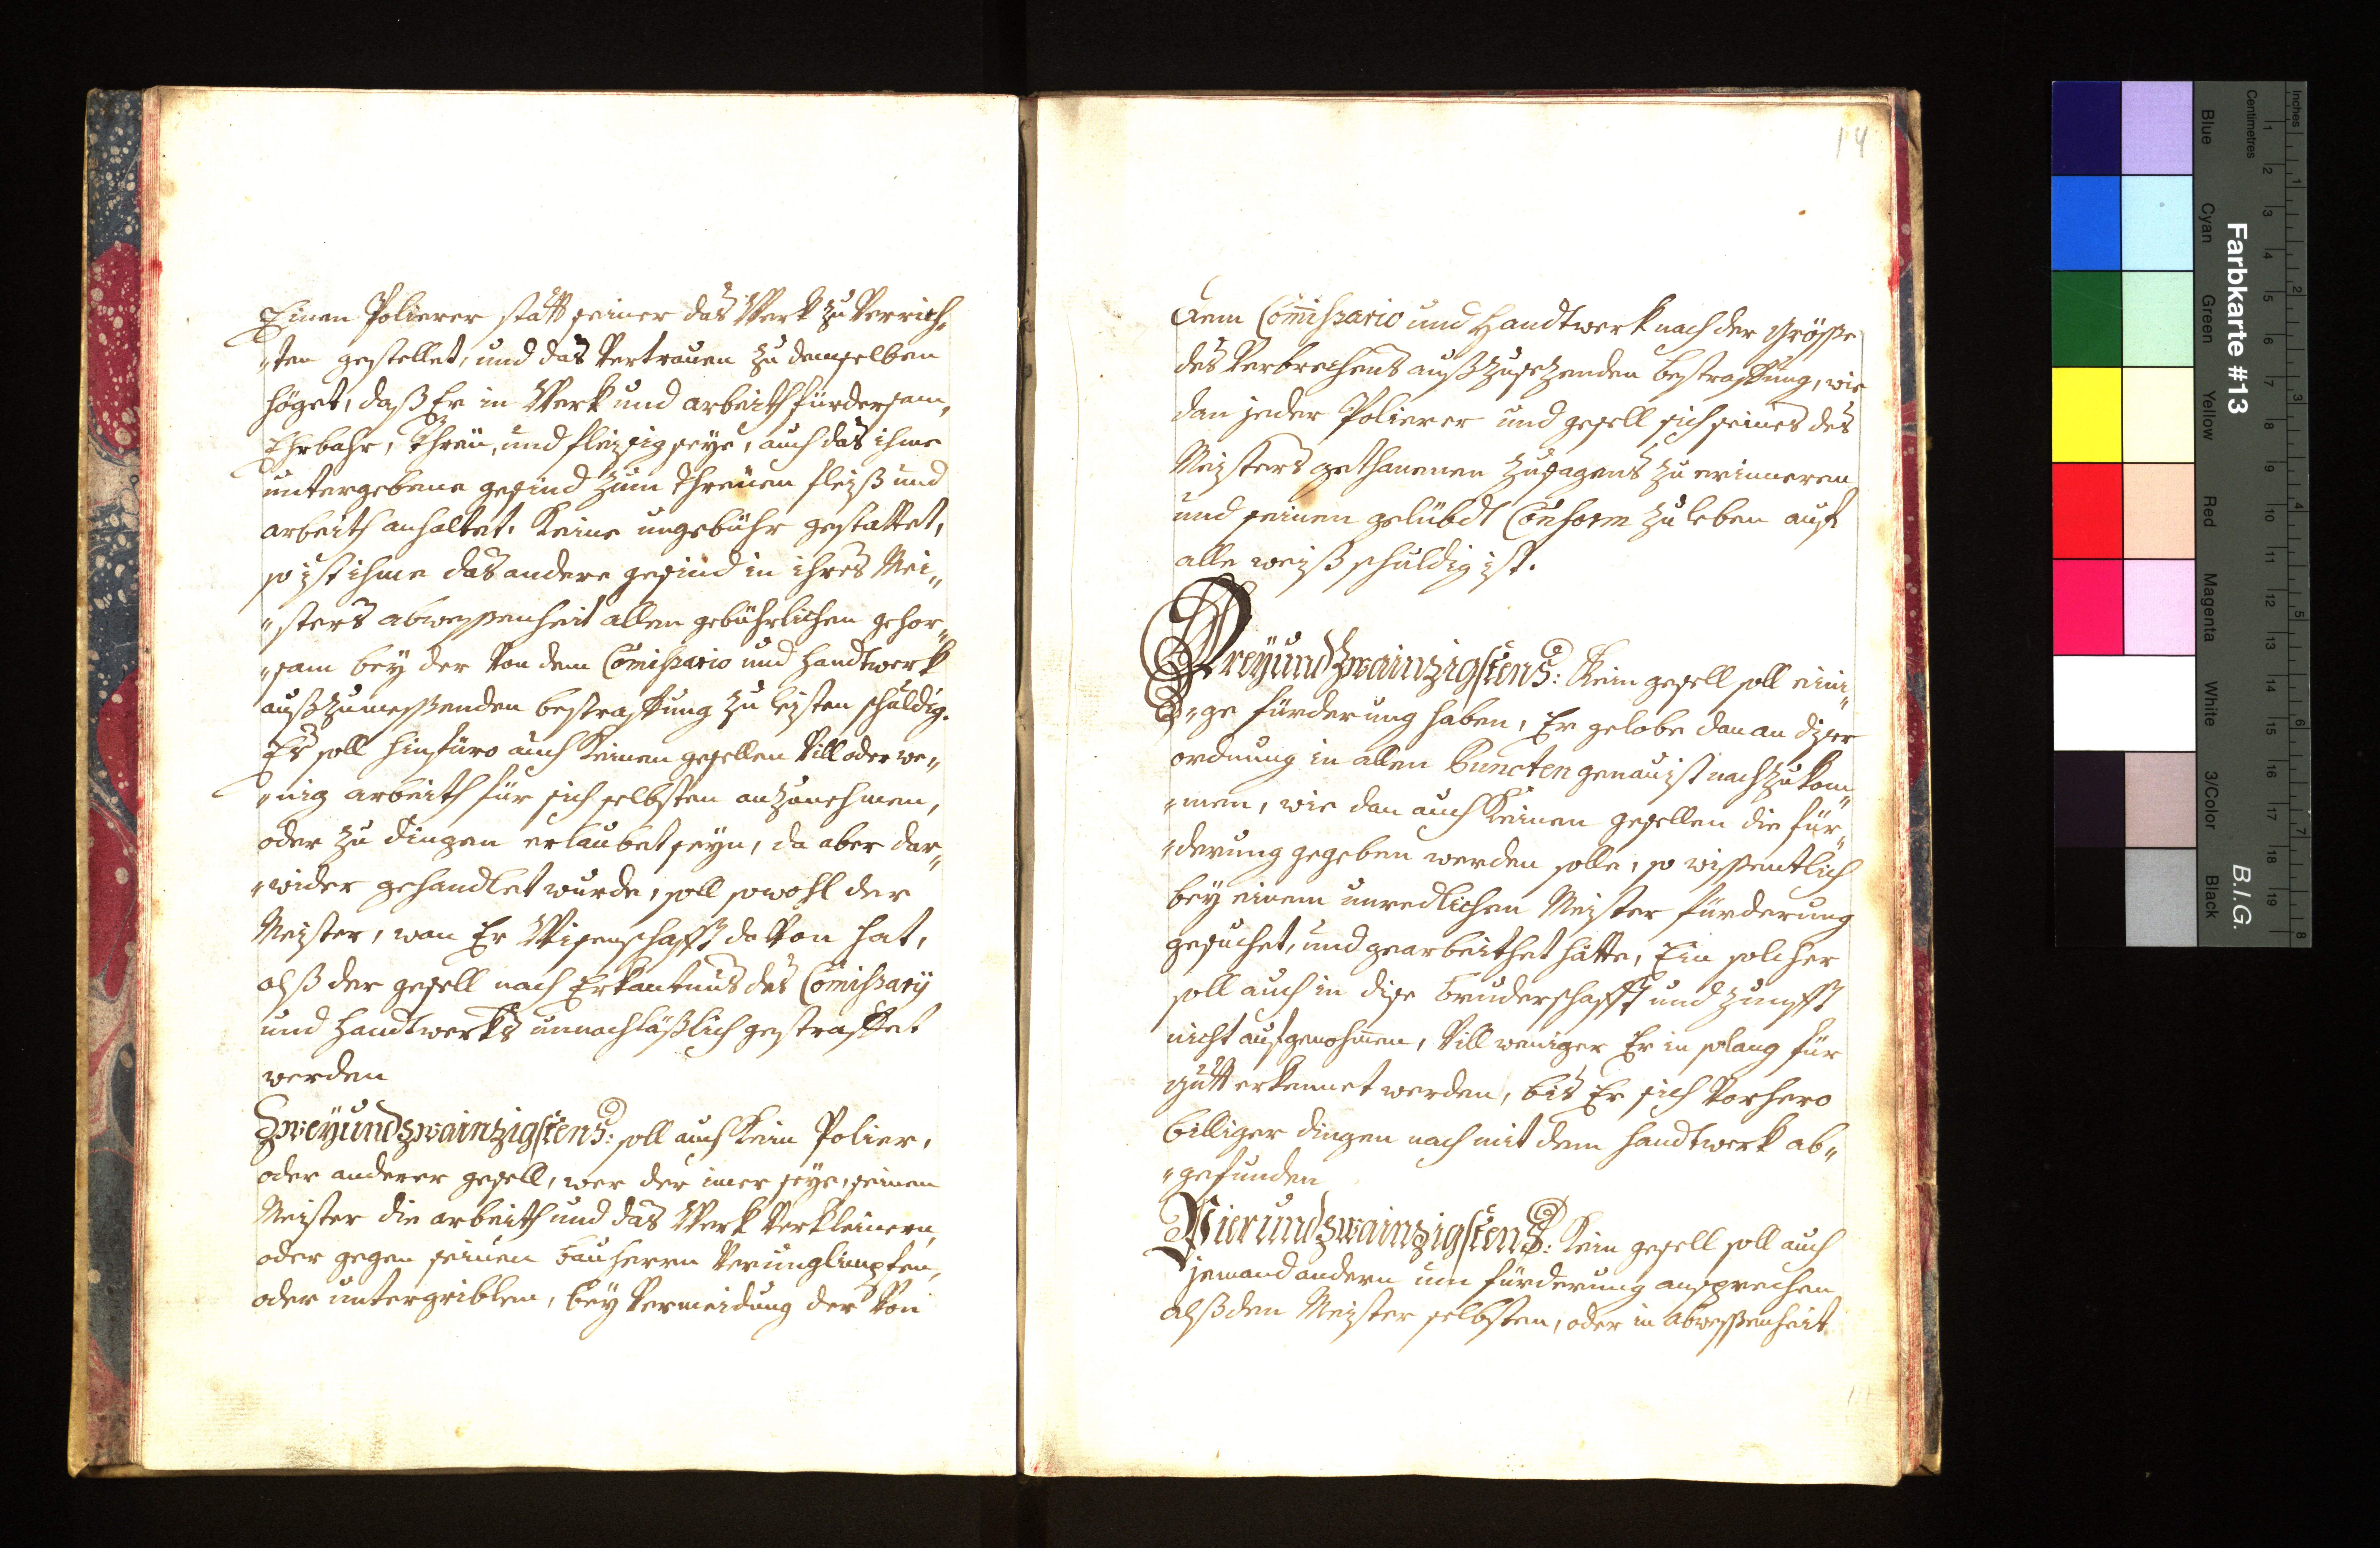 Einen Polierer statt seiner das Werk zu Verrich„
„ten gestellet, und das Vertrauen zu demselben
höget, daß Er in Werk und arbeith fürdersam,
Ehrbahr, Threü, und fleissig seye, auch das ihme
untergebene gesind zum Threüen fleiß und
arbeith anhaltet. Keine ungebühr gestattet,
so ist ihme das andere gesind in ihres Mei„
„sters abwessenheit allen gebührlichen gehor„
„sam bey der Von dem Comissario und Handtwerk
außzumessenden bestraffung zu leisten schuldig.
Es soll hinfüro auch Keinen gesellen Vill oder we„
„nig arbeith für sich selbsten anzunehmen,
oder zu dingen erlaubet seyn, da aber dar„
„wider gehandlet wurde, soll sowohl der
Meister, wan Er Wisenschafft daVon hat,
alß der gesell nach Erkantnus des Comissarÿ
und Handtwerks unnachläßlich gestraffet
werden
Zweÿundzwainzigstens: soll auch Kein Polier,
oder anderer gesell, wer der imer seye, seinem
Meister die arbeith und das Werk Verkleinern,
oder gegen seinen Bauherrn Verunglimpfen,
oder untergriblen, beÿ Vermeidung der Von
14
dem Comissario und Handtwerk nach der grösse
des Verbrechens außzusezenden bestraffung, wie
dan jeder Polierer und gesell sich seines des
Meisters gethanenen zusagens zu erinneren
und seinen gelübdt Conform zu leben auf
alle weiß schuldig ist.
Dreÿundzwainzigstens: Kein gesell soll eini„
„ge fürderung haben, Er gelobe dan an diser
ordnung in allen Puncten genauist nachzukom„
„men, wie dan auch Keinen gesellen die für„
„derung gegeben werden solle, so wissentlich
beÿ einem unredlichen Meister fürderung
gesuchet, und gearbeithet hätte, Ein solcher
soll auch in dise Bruderschafft und Zunfft
nicht aufgenohmen, Vill weniger Er in solang für
gutt erkennet werden, bis Er sich Vorhero
billiger dingen nach mit dem Handtwerk ab„
„gefunden
Vierundzwainzigstens: Kein gesell soll auch
jemand andern um fürderung ansprechen
alß den Meister selbsten, oder in abwessenheit
Farbkarte #13
B.I.G.
Inches
Centimetres
1
2
3
4
5
6
7
8
9
10
11
12
13
14
15
16
17
18
19
1
2
3
4
5
6
7
8
Blue
Cyan
Green
Yellow
Red
Magenta
White
3/Color
Black